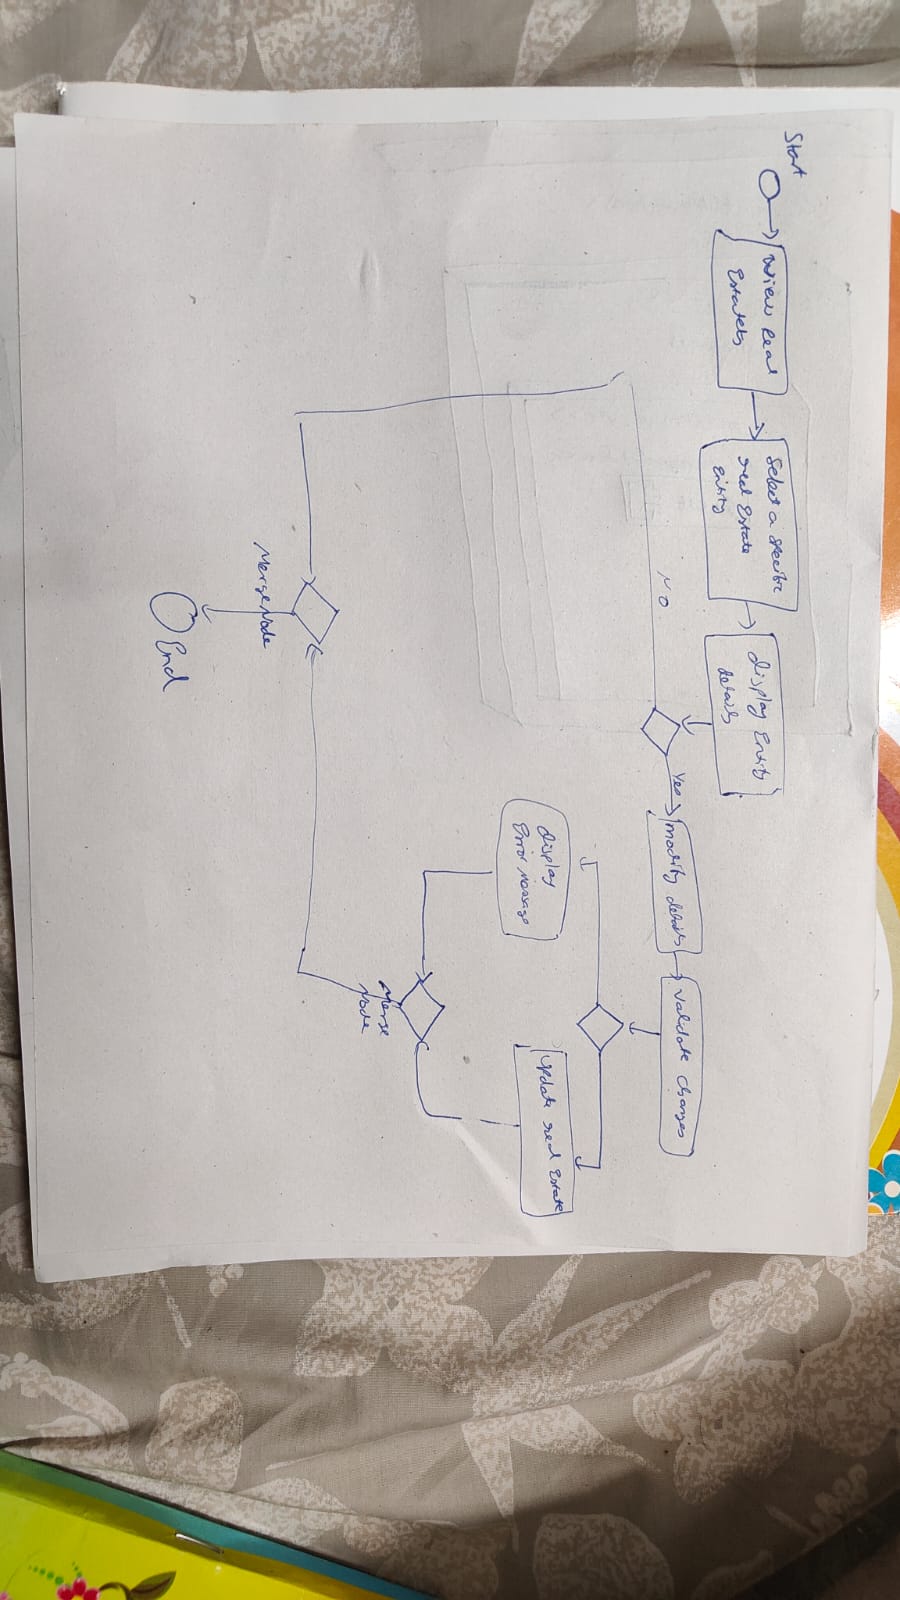 Start
Review Real
Estates
Select a specific
real Estate
Entity
display Entity
details
NO
Yes
modify details
validate changes
display
Error Message
update real Estate
Merge
Node
MergeNode
End